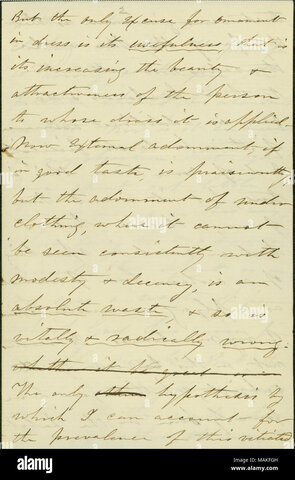 But the only excuse for ornament
in dress is its usefulness, that is
its increasing the beauty &
attractiveness of the person
to whose dress it is applied.
Now External adornment, if
in good taste is praiseworthy,
but the adornment of under
clothing, where it cannot
be seen consistently with
modesty & decency, is an
absolute waste, & so is
vitally & radically wrong.
The only other hypothesis by
which I can account for
the prevalence of this
alamy
Image ID: MAKFGH
www.alamy.com